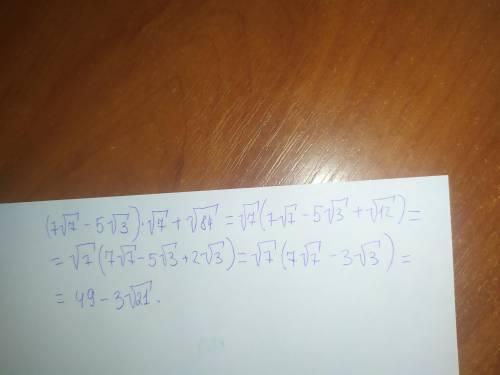 (7√7 - 5√3)·√7 + √84 = √7(7√7 - 5√3 + √12) =
= √7(7√7 - 5√3 + 2√3) = √7(7√7 - 3√3) =
= 49 - 3√21.